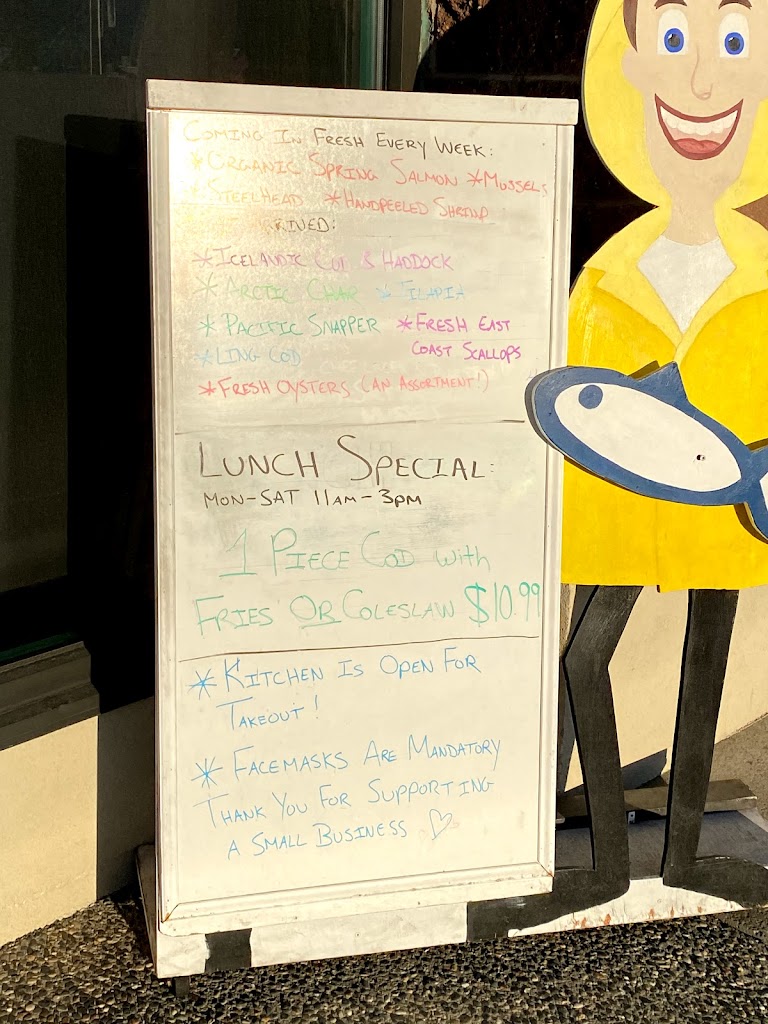 COMING IN FRESH EVERY WEEK:
* ORGANIC SPRING SALMON * MUSSELS
STEELHEAD * HANDPEELED SHRIMP
RIVED:
* ICELANDIC COD & HADDOCK
* ARCTIC CHAR * TILAPIA
* PACIFIC SNAPPER * FRESH EAST
* LING COD COAST SCALLOPS
* FRESH OYSTERS (AN ASSORTMENT!)
LUNCH SPECIAL:
MON-SAT 11AM-3PM
1 PIECE COD WITH
FRIES OR COLESLAW $10.99
* KITCHEN IS OPEN FOR
TAKEOUT!
* FACEMASKS ARE MANDATORY
THANK YOU FOR SUPPORTING
A SMALL BUSINESS ♡